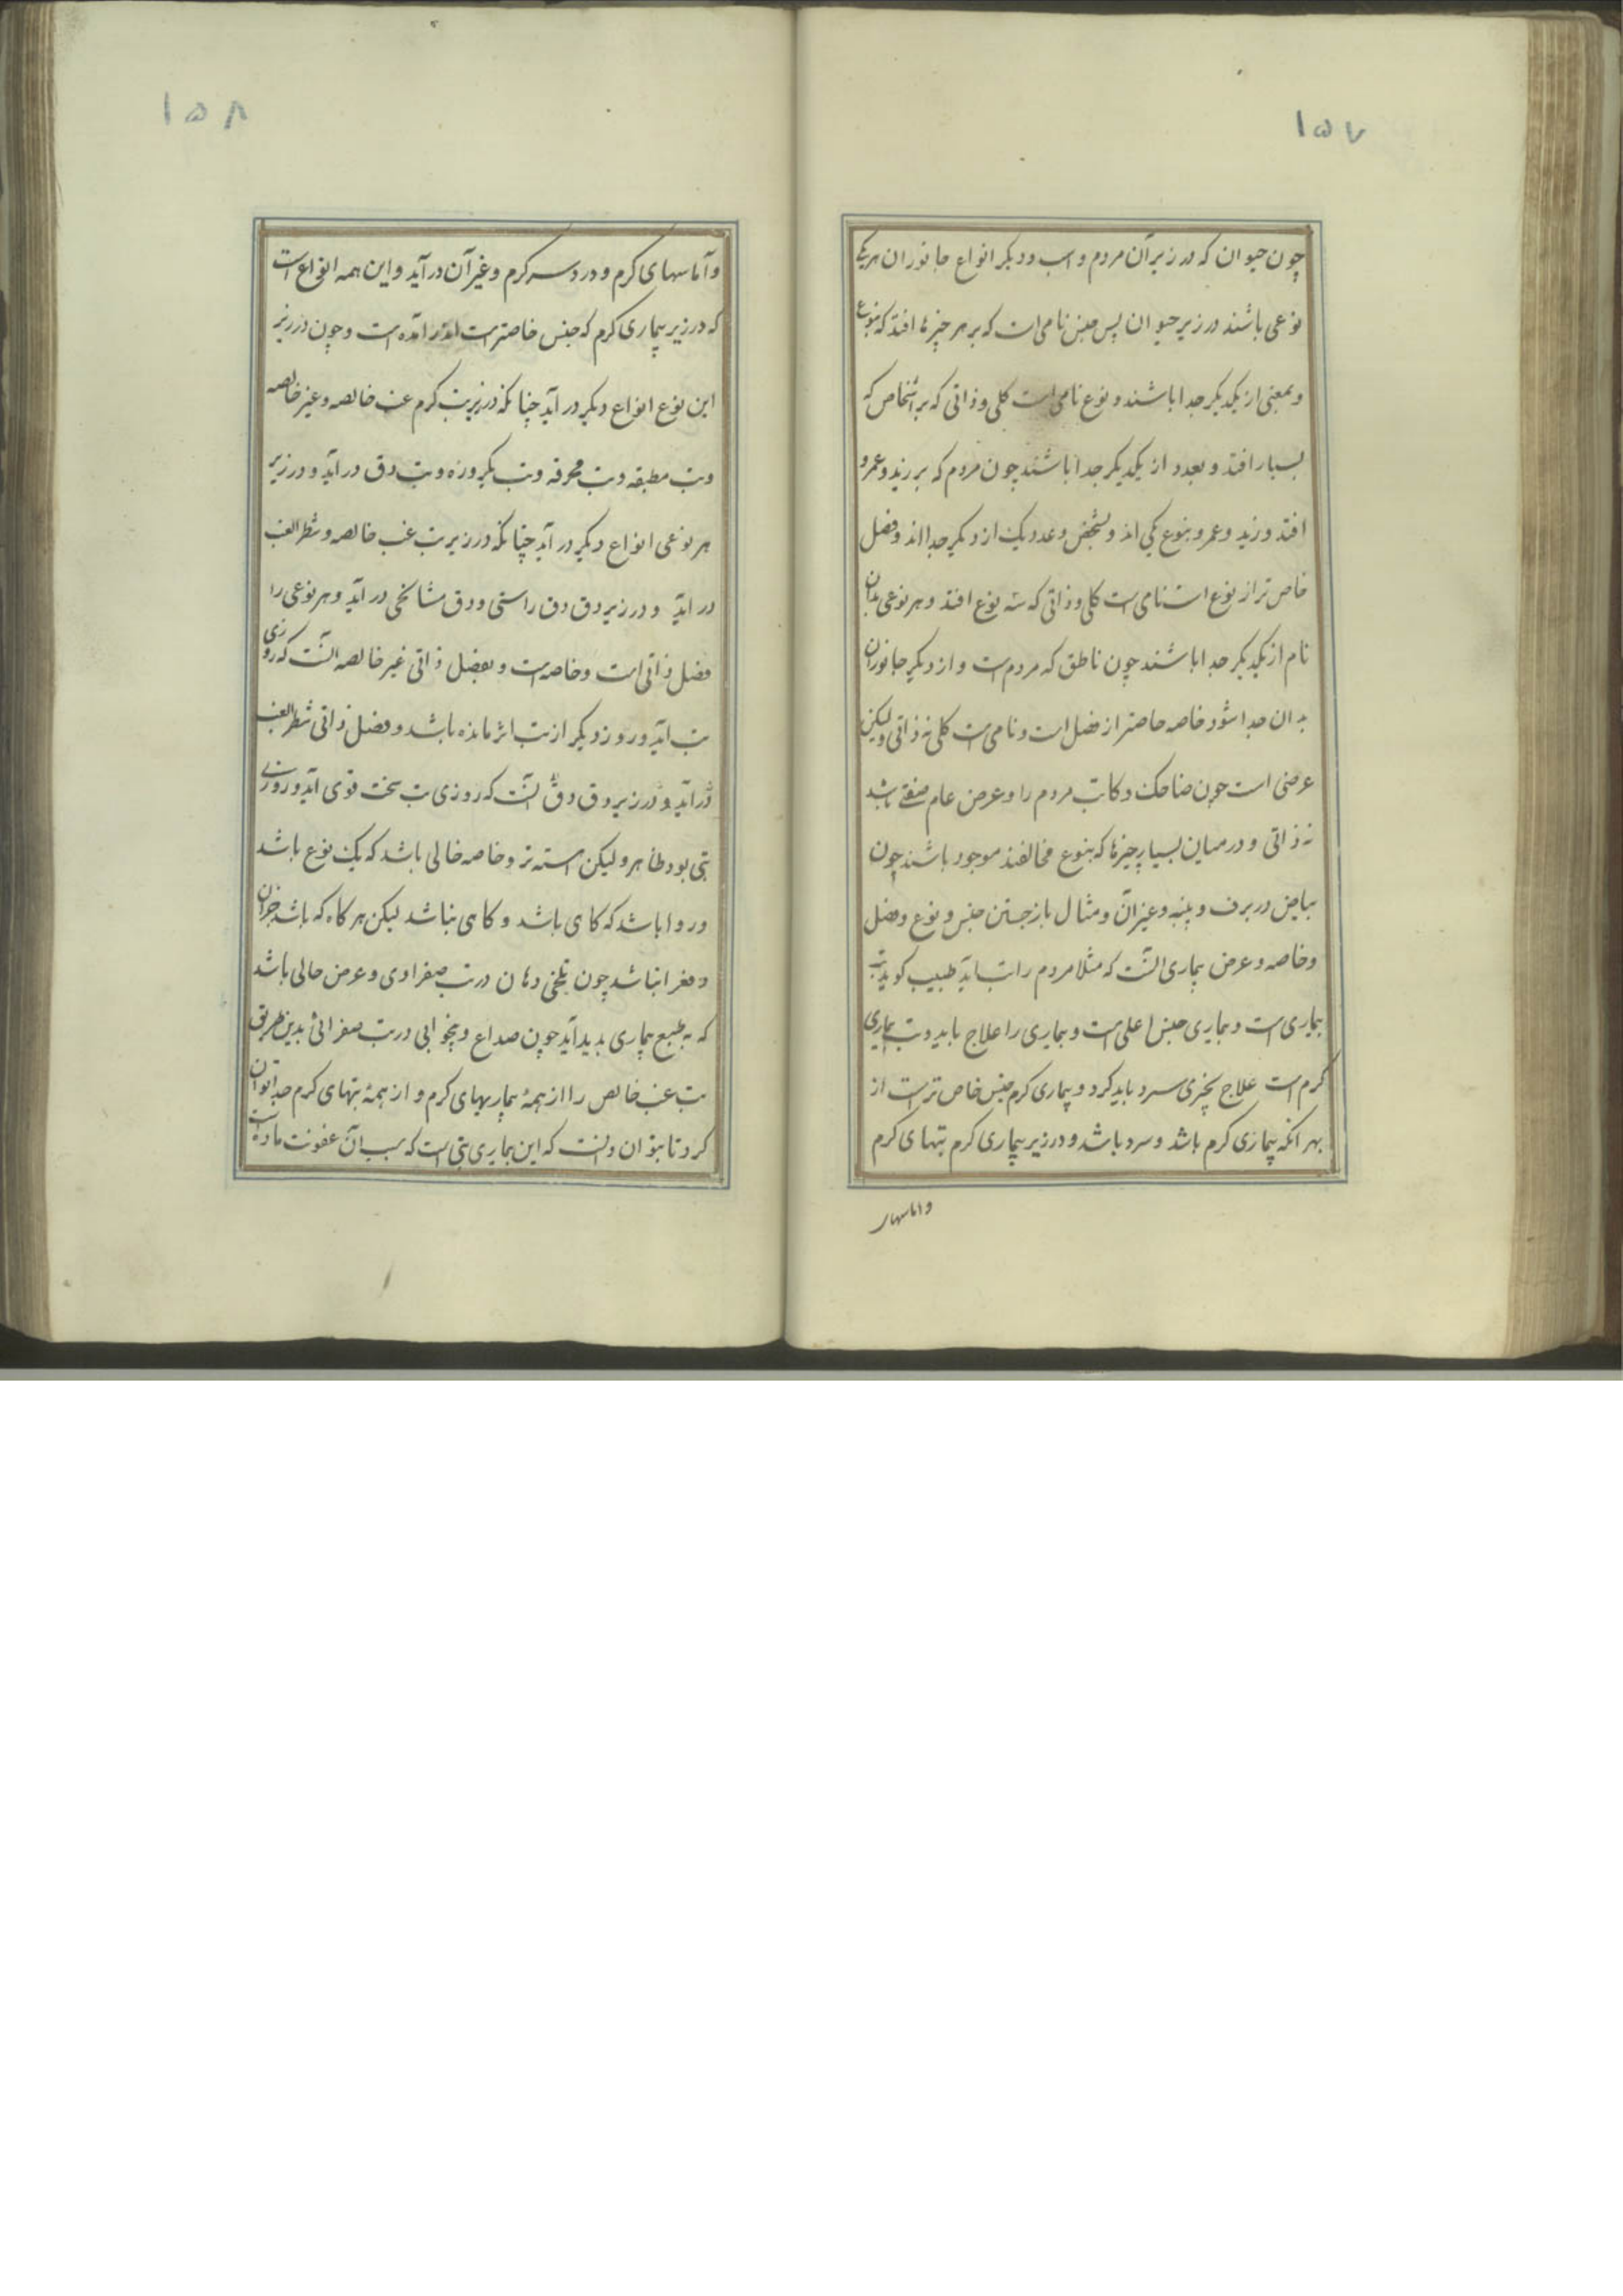 ۱۵۷
چون حیوان که در زیر آن مردم و اسب و دیگر انواع جانوران هر یکی
نوعی باشند در زیر حیوان پس جنس نامی است که بر هر چیزها افتد که بنوع
و بمعنی از یکدیگر جدا باشند و نوع نامی است کلی و ذاتی که بر اشخاص که
بسیار افتد و بعدد از یکدیگر جدا باشند چون مردم که بر زید و عمرو
افتد و زید و عمرو بنوع یکی اند و بشخص و عدد یک از دیگر جدااند و فصل
خاص تر از نوع است نامی است کلی و ذاتی که بر نوع افتد و هر نوعی بدان
نام از یکدیگر جدا باشند چون ناطق که مردم است و از دیگر جانوران
بدان جدا شود خاصه خاصتر از فصل است و نامی است کلی نه ذاتی ولیکن
عرضی است چون ضاحک و کاتب مردم را و عرض عام صفتی باشد
نه ذاتی و در میان بسیار چیزها که بنوع مخالفند موجود باشند چون
بیاض در برف و پنبه و غیر آن و مثال باز جستن جنس و نوع و فصل
و خاصه و عرض بیماری آنست که مثلا مردم را تب آید طبیب کوید تب
بیماری است و بیماری جنس اعلی است و بیماری را علاج باید و تب بیماری
کرم است علاج بچیزی سرد باید کرد و بیماری کرم جنس خاص تر است از
بهر آنکه بیماری کرم باشد و سرد باشد و در زیر بیماری کرم تبهای کرم
واماسهار
۱۵۸
و آماسهای کرم و درد سر کرم و غیر آن در آید و این همه انواع است
که در زیر بیماری کرم که جنس خاصتر است اندر آمده است و چون در زیر
این نوع انواع دیگر در آید چنانکه در زیر تب کرم غب خالصه و غیر خالصه
و تب مطبقه و تب محرقه و تب یکروزه و تب دق در آید و در زیر
هر نوعی انواع دیگر در آید چنانکه در زیر تب غب خالصه و شطر الغب
در آید و در زیر دق دق راستی و دق مشایخی در آید و هر نوعی را
فصل ذاتی است و خاصه است و بفصل ذاتی غیر خالصه آنست که روزی
تب آید و روز دیگر از تب اثر مانده باشد و فصل ذاتی شطر الغب
در آید و در زیر دق دق آنست که روزی تب سخت قوی آید و روزی
تبی بود ظاهر ولیکن آهسته تر و خاصه حالی باشد که یک نوع باشد
و روا باشد که کاهی باشد و کاهی نباشد لیکن هر کاه که باشد جز آن
و مغز انباشد چون تلخی دهان در تب صفراوی و عرض حالی باشد
که به طبع بیماری پدید آید چون صداع و بیخوابی در تب صفرائی بدین طریق
تب غب خالص را از همهٔ بیماریهای کرم و از همهٔ تبهای کرم جدا توان
کرد تا بتوان دانست که این بیماری تبی است که سبب آن عفونت ماده